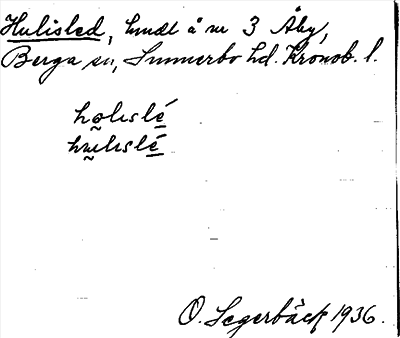 Hulisled, hmdl å nr 3 Åby,
Berga sn, Sunnerbo hd. Kronob. l.
holıslé
hulıslé
O. Segerbäck 1936.